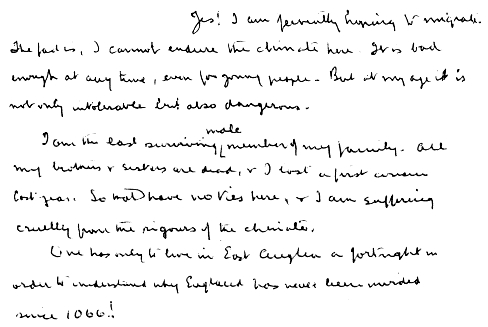 Yes! I am fervently hoping to emigrate.
The fact is, I cannot endure the climate here. It is bad
enough at any time, even for young people. But at my age it is
not only intolerable but also dangerous.
male
I am the last surviving member of my family. All
my brothers & sisters are dead, & I lost a first cousin
last year. So I have no ties here, & I am suffering
cruelly from the rigours of the climate.
One has only to live in East Anglia a fortnight in
order to understand why England has never been invaded
since 1066!